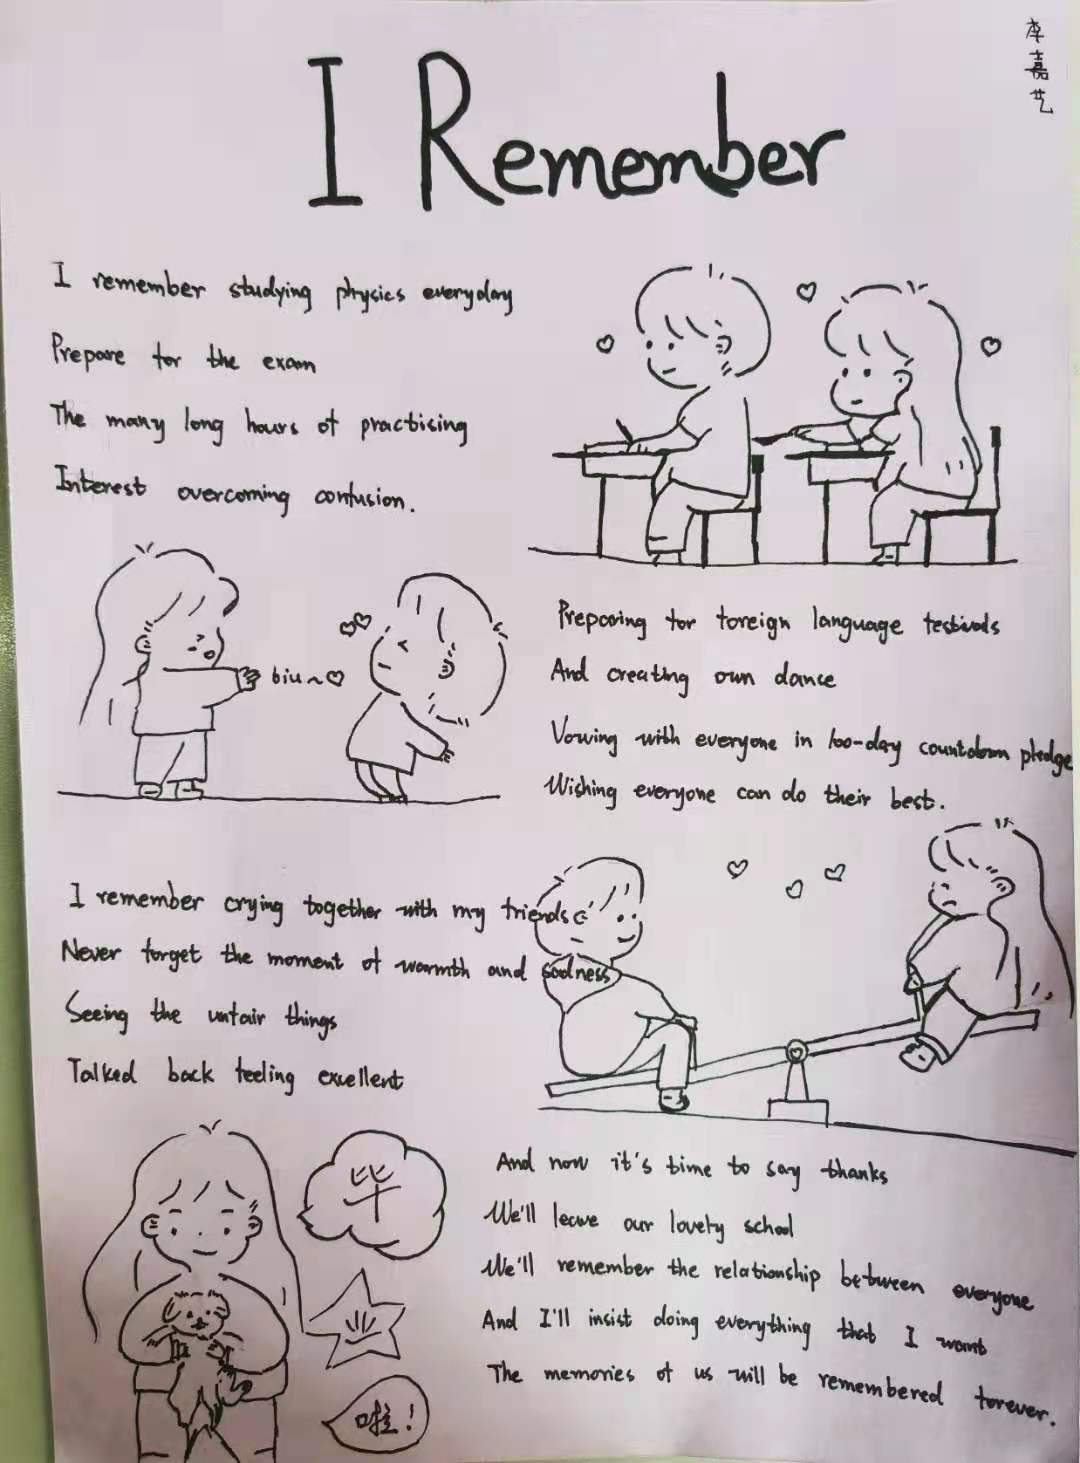 李嘉艺
I Remember
I remember studying physics everyday
Prepare for the exam
The many long hours of practising
Interest overcoming confusion.
biu~
Preparing for foreign language festivals
And creating own dance
Vowing with everyone in 100-day countdown pledge
Wishing everyone can do their best.
I remember crying together with my friends
Never forget the moment of warmth and sadness
Seeing the unfair things
Talked back feeling excellent
毕
业
啦!
And now it's time to say thanks
We'll leave our lovely school
We'll remember the relationship between everyone
And I'll insist doing everything that I want
The memories of us will be remembered forever.